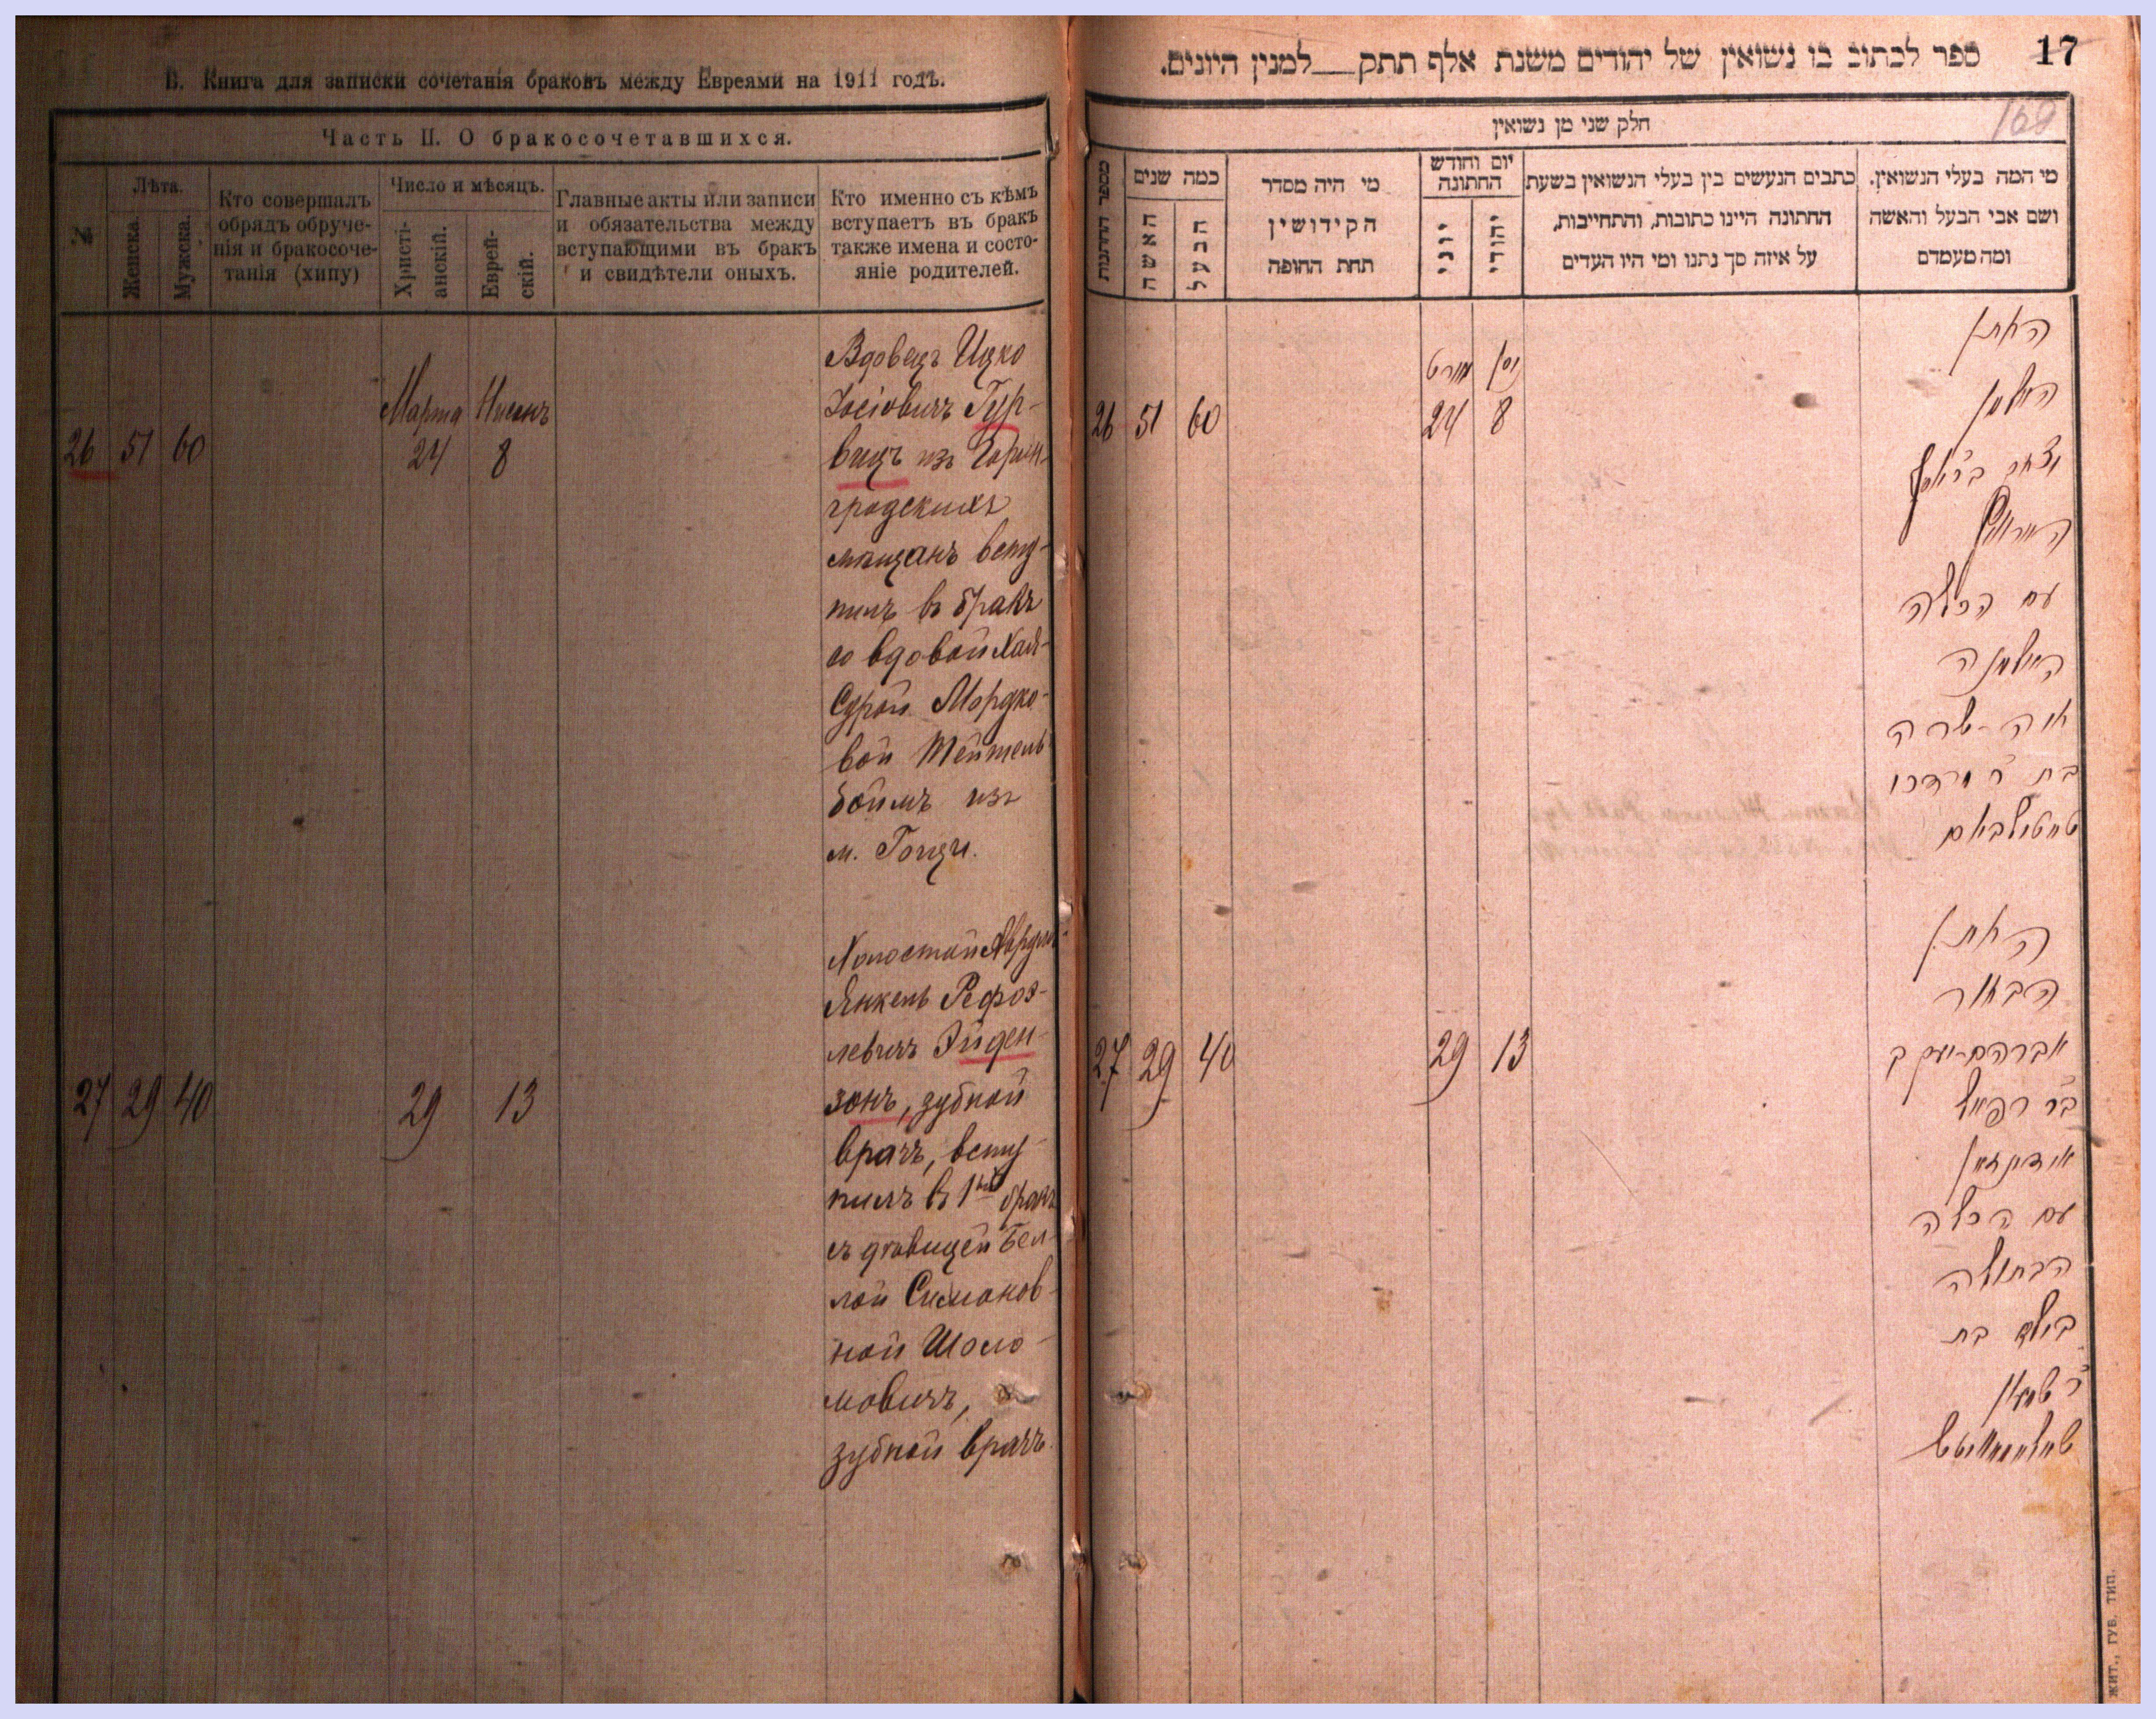 В. Книга для записки сочетанія браковъ между Евреями на 1911 годъ.
Часть II. О бракосочетавшихся.
№
Лѣта.
Женска.
Мужеска.
Кто совершалъ
обрядъ обруче-
нія и бракосоче-
танія (хипу)
Число и мѣсяцъ.
Христі-
анскій.
Еврей-
скій.
Главные акты или записи
и обязательства между
вступающими въ бракъ
и свидѣтели оныхъ.
Кто именно съ кѣмъ
вступаетъ въ бракъ
также имена и состо-
яніе родителей.
Марта Нисонъ
26 51 60 24 8
Вдовецъ Ицко
Іосіовичъ Гур-
вицъ изъ
градскихъ
мѣщанъ всту-
пилъ въ бракъ
со вдовой Хаей-
Сурой Мордко-
вой Тейтель-
боймъ изъ
м. Гощи.
27 29 40 29 13
Холостой
Янкель Рефоэ-
левичъ Эйден-
зонъ, зубной
врачъ, всту-
пилъ въ 1й бракъ
съ дѣвицей Бел-
лой Симонов-
ной Шоло-
мовичъ,
зубной врачъ.
17
ספר לכתוב בו נשואין של יהודים משנת אלף תתק למנין היונים.
169
חלק שני מן נשואין
מספר החתונות
כמה שנים
האשה
הבעל
מי היה מסדר
הקידושין
תחת החופה
יום וחודש
החתונה
יוני
יהודי
כתבים הנעשים בין בעלי הנשואין בשעת
החתונה היינו כתובות, והתחייבות,
על איזה סך נתנו ומי היו העדים
מי המה בעלי הנשואין.
ושם אבי הבעל והאשה
ומה מעמדם
מארט ניסן
26 51 60 24 8
החתן
האלמן
יצחק ב״ר יוסף
הורוויץ
עם הכלה
האלמנה
חיה-שרה
בת ר׳ מרדכי
טייטלבאם
27 29 40 29 13
החתן
הבחור
אברהם-יעקב
ב״ר רפאל
אידינזאן
עם הכלה
הבתולה
ביילא בת
ר׳ שמעון
ЖИТ., ГУБ. ТИП.